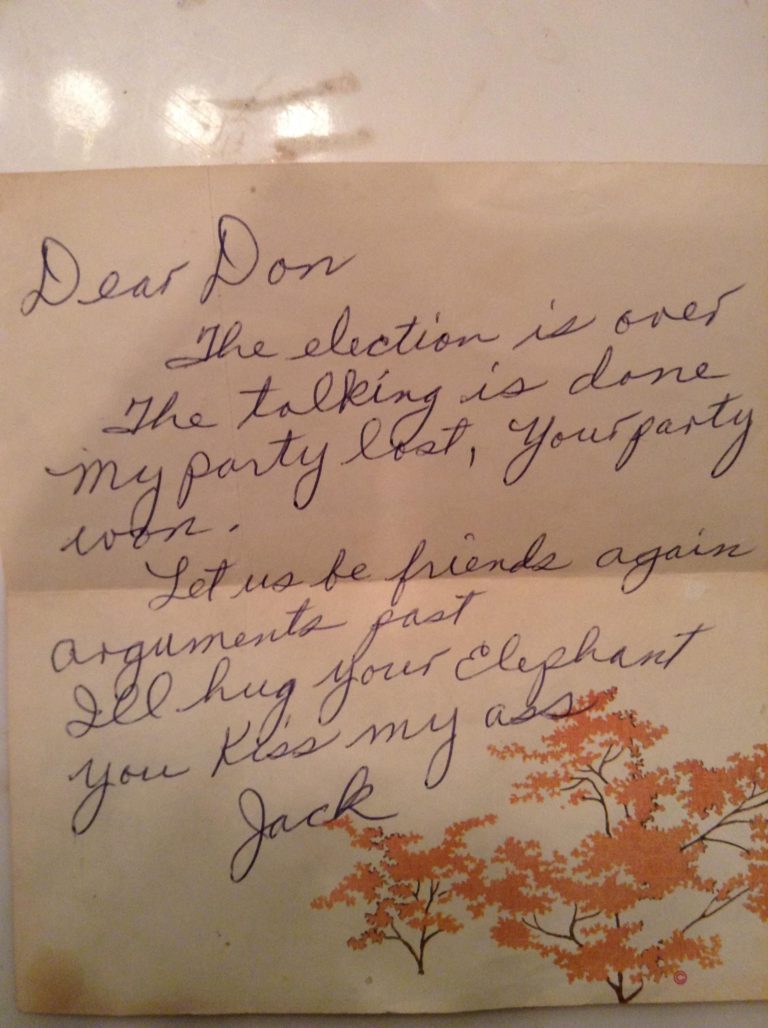 Dear Don
The election is over
The talking is done
My party lost, Your party
won.
Let us be friends again
arguments past
I'll hug your Elephant
you Kiss my ass
Jack
©